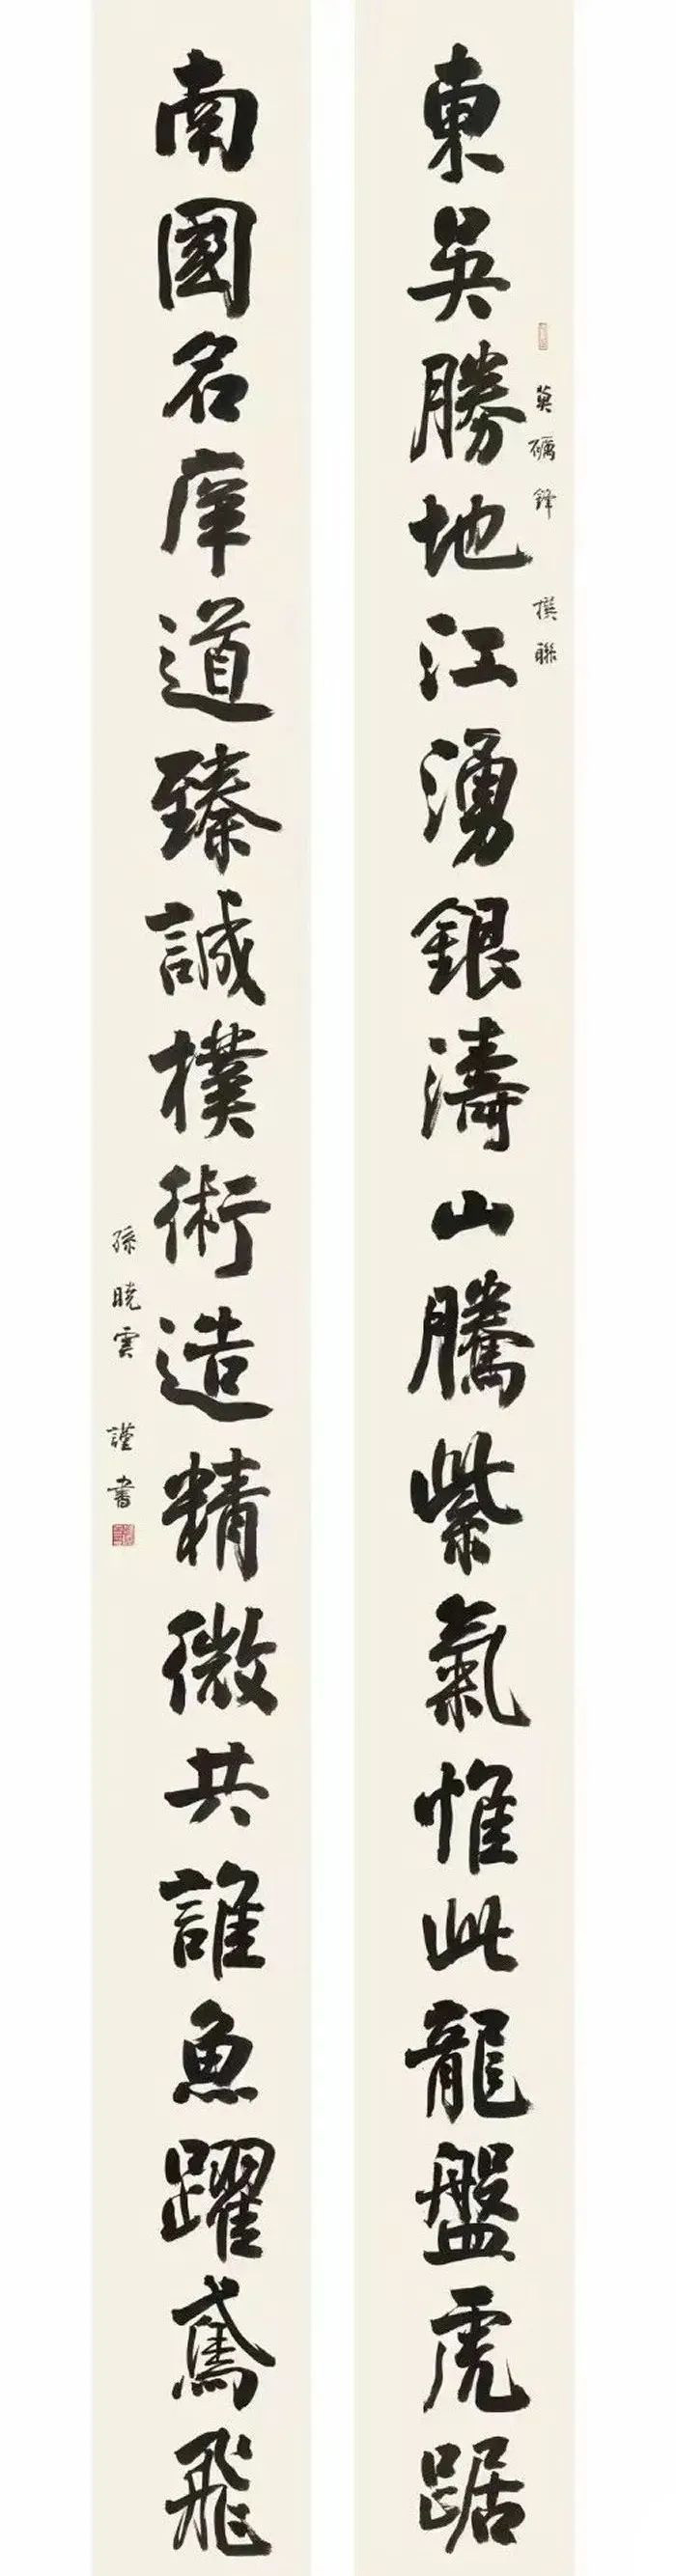 東吳勝地江湧銀濤山騰紫氣惟此龍盤虎踞
莫礪鋒 撰聯
南國名庠道臻誠樸術造精微共誰魚躍鳶飛
孫曉雲 謹書